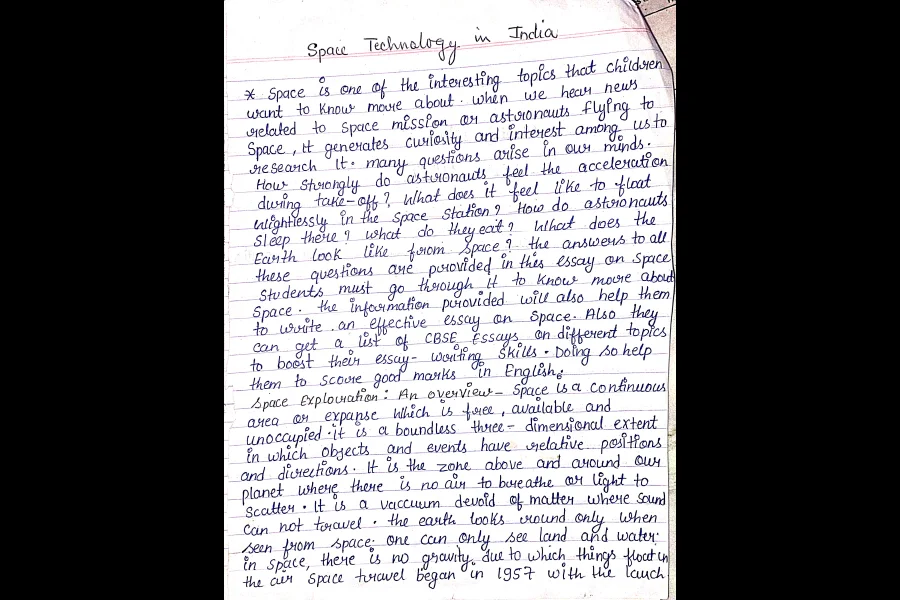 Space Technology in India
* Space is one of the interesting topics that children
want to know more about. when we hear news
related to space mission or astronauts flying to
Space, it generates curiosity and interest among us to
research it. many questions arise in our minds.
How strongly do astronauts feel the acceleration
during take-off? What does it feel like to float
wightlessly in the space station? How do astronauts
sleep there? what do they eat? What does the
Earth look like from space? the answers to all
these questions are provided in this essay on Space
Students must go through it to know more about
Space. the information provided will also help them
to write an effective essay on space. Also they
can get a list of CBSE Essays on different topics
to boost their essay-writing skills. Doing so help
them to score good marks in English.
Space Exploration: An overview- Space is a continuous
area or expanse which is free, available and
unoccupied. it is a boundless three-dimensional extent
in which objects and events have relative positions
and directions. It is the zone above and around our
planet where there is no air to breathe or light to
scatter. It is a vaccuum devoid of matter where sound
can not travel. the earth looks round only when
seen from space. one can only see land and water.
in space, there is no gravity. due to which things float in
the air space travel began in 1957 with the lauch